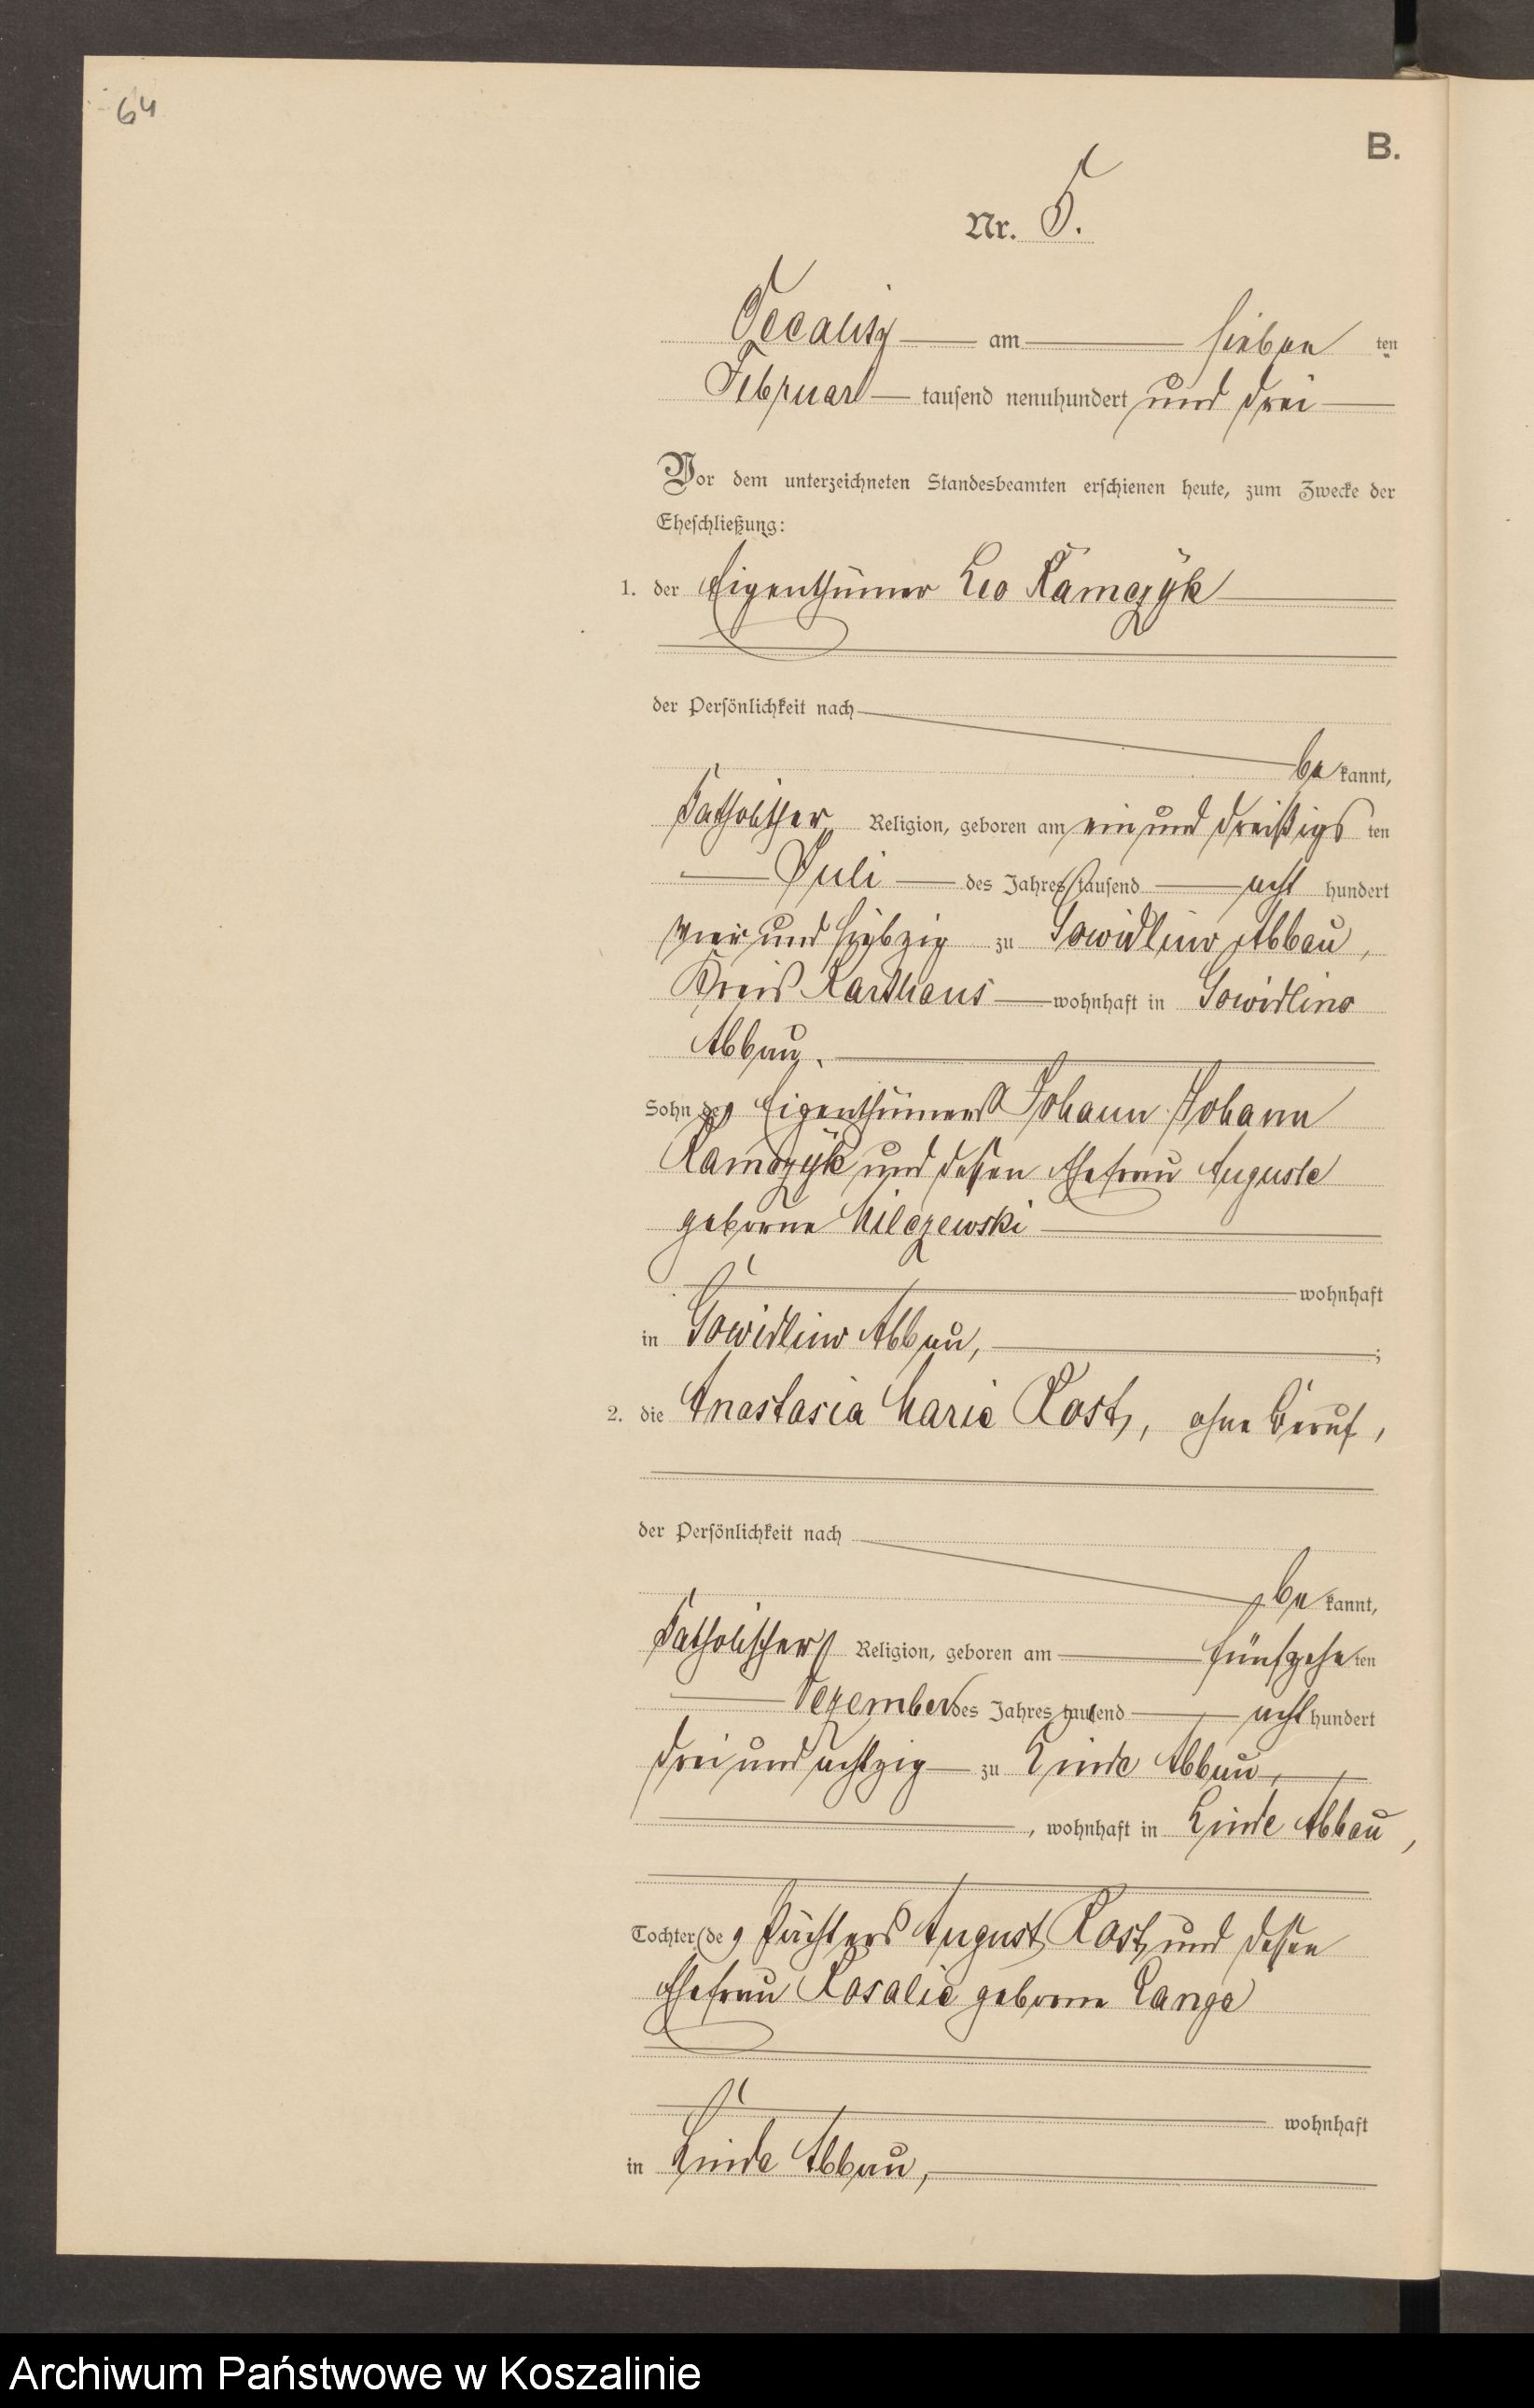 64
B.
Nr. 5.
am sieben ten
Februar tausend neunhundert und drei
Vor dem unterzeichneten Standesbeamten erschienen heute, zum Zwecke der
Eheschließung:
1. der Eigenthümer Leo Kamczyk
der Persönlichkeit nach
be kannt,
katholischer Religion, geboren am ein und dreißigs ten
Juli des Jahres tausend acht hundert
vier und siebzig zu Gowidlino Abbau,
Kreis Karthaus wohnhaft in Gowidlino
Abbau,
Sohn des Eigenthümers Johann Johann
Kamczyk und dessen Ehefrau Auguste
geborne Milczewski
wohnhaft
in Gowidlino Abbau, ;
2. die Anastasia Maria Kostz, ohne Beruf,
der Persönlichkeit nach
be kannt,
katholischer Religion, geboren am fünfzehn ten
Dezember des Jahres tausend acht hundert
drei und achtzig zu Linde Abbau,
, wohnhaft in Linde Abbau,
Tochter des Pächters August Kostz und dessen
Ehefrau Rosalie geborne Lange
wohnhaft
in Linde Abbau,
Archiwum Państwowe w Koszalinie